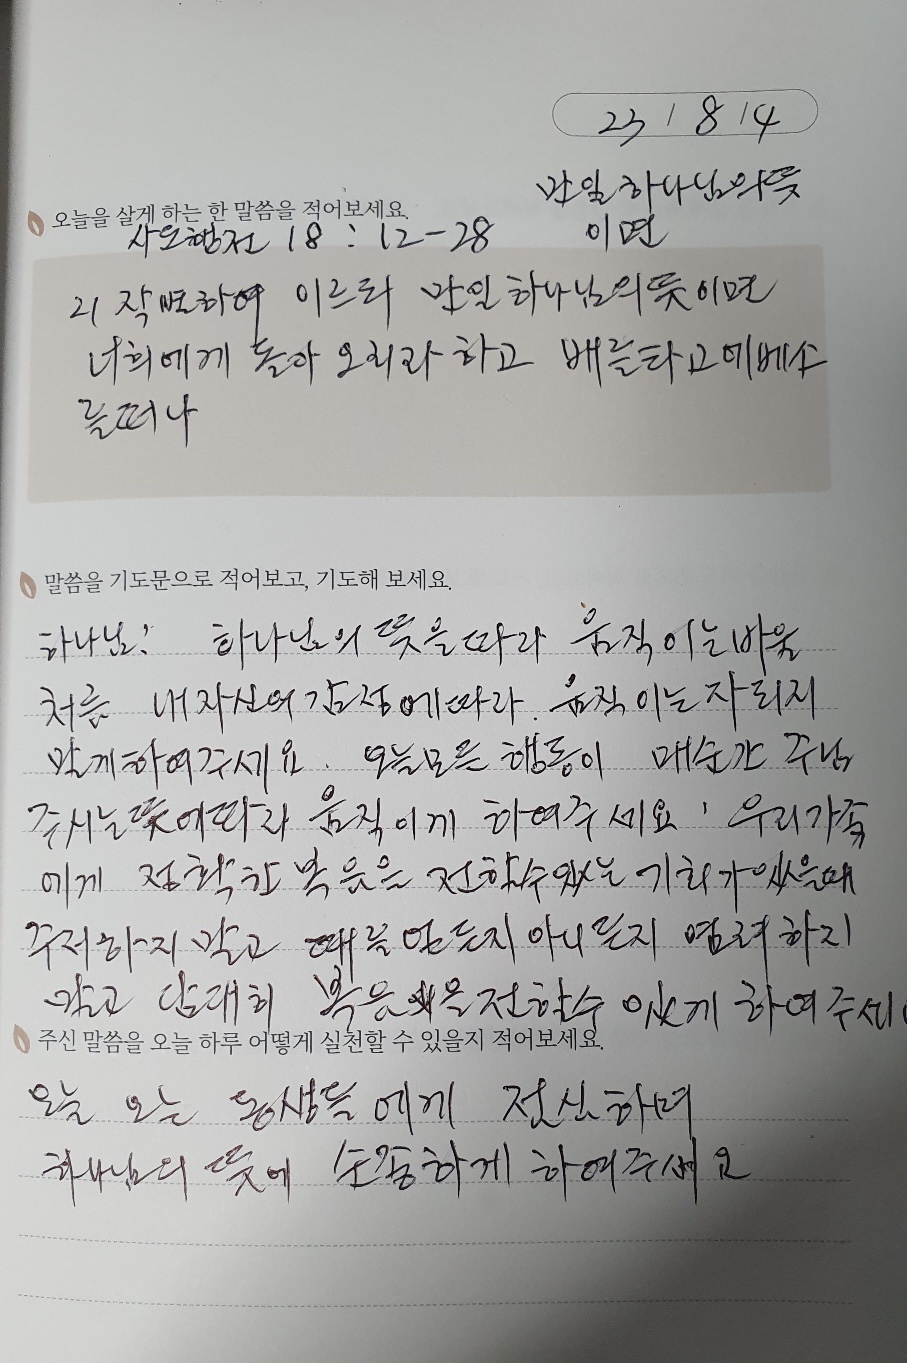 23 / 8 / 4
만일 하나님의 뜻
이면
오늘을 살게 하는 한 말씀을 적어보세요.
사도행전 18 : 12-28
21 작별하여 이르되 만일 하나님의 뜻이면
너희에게 돌아 오리라 하고 배를타고에베소
를떠나
말씀을 기도문으로 적어보고, 기도해 보세요.
하나님! 하나님의 뜻을따라 움직이는바울
처럼 내자신의감정에따라 움직이는자리지
말게하여주세요. 오늘모든 행동이 매순간 주님
주시는뜻에따라 움직이게 하여주세요. 우리가족
에게 정확한 복음을 전할수있는 기회가있을때
주저하지말고 때를얻든지아니든지 염려하지
말고 담대히 복음을전할수 있게 하여주세
주신 말씀을 오늘 하루 어떻게 실천할 수 있을지 적어보세요.
오늘 오는 동생들에게 헌신하며
하나님의 뜻에 순종하게 하여주세요